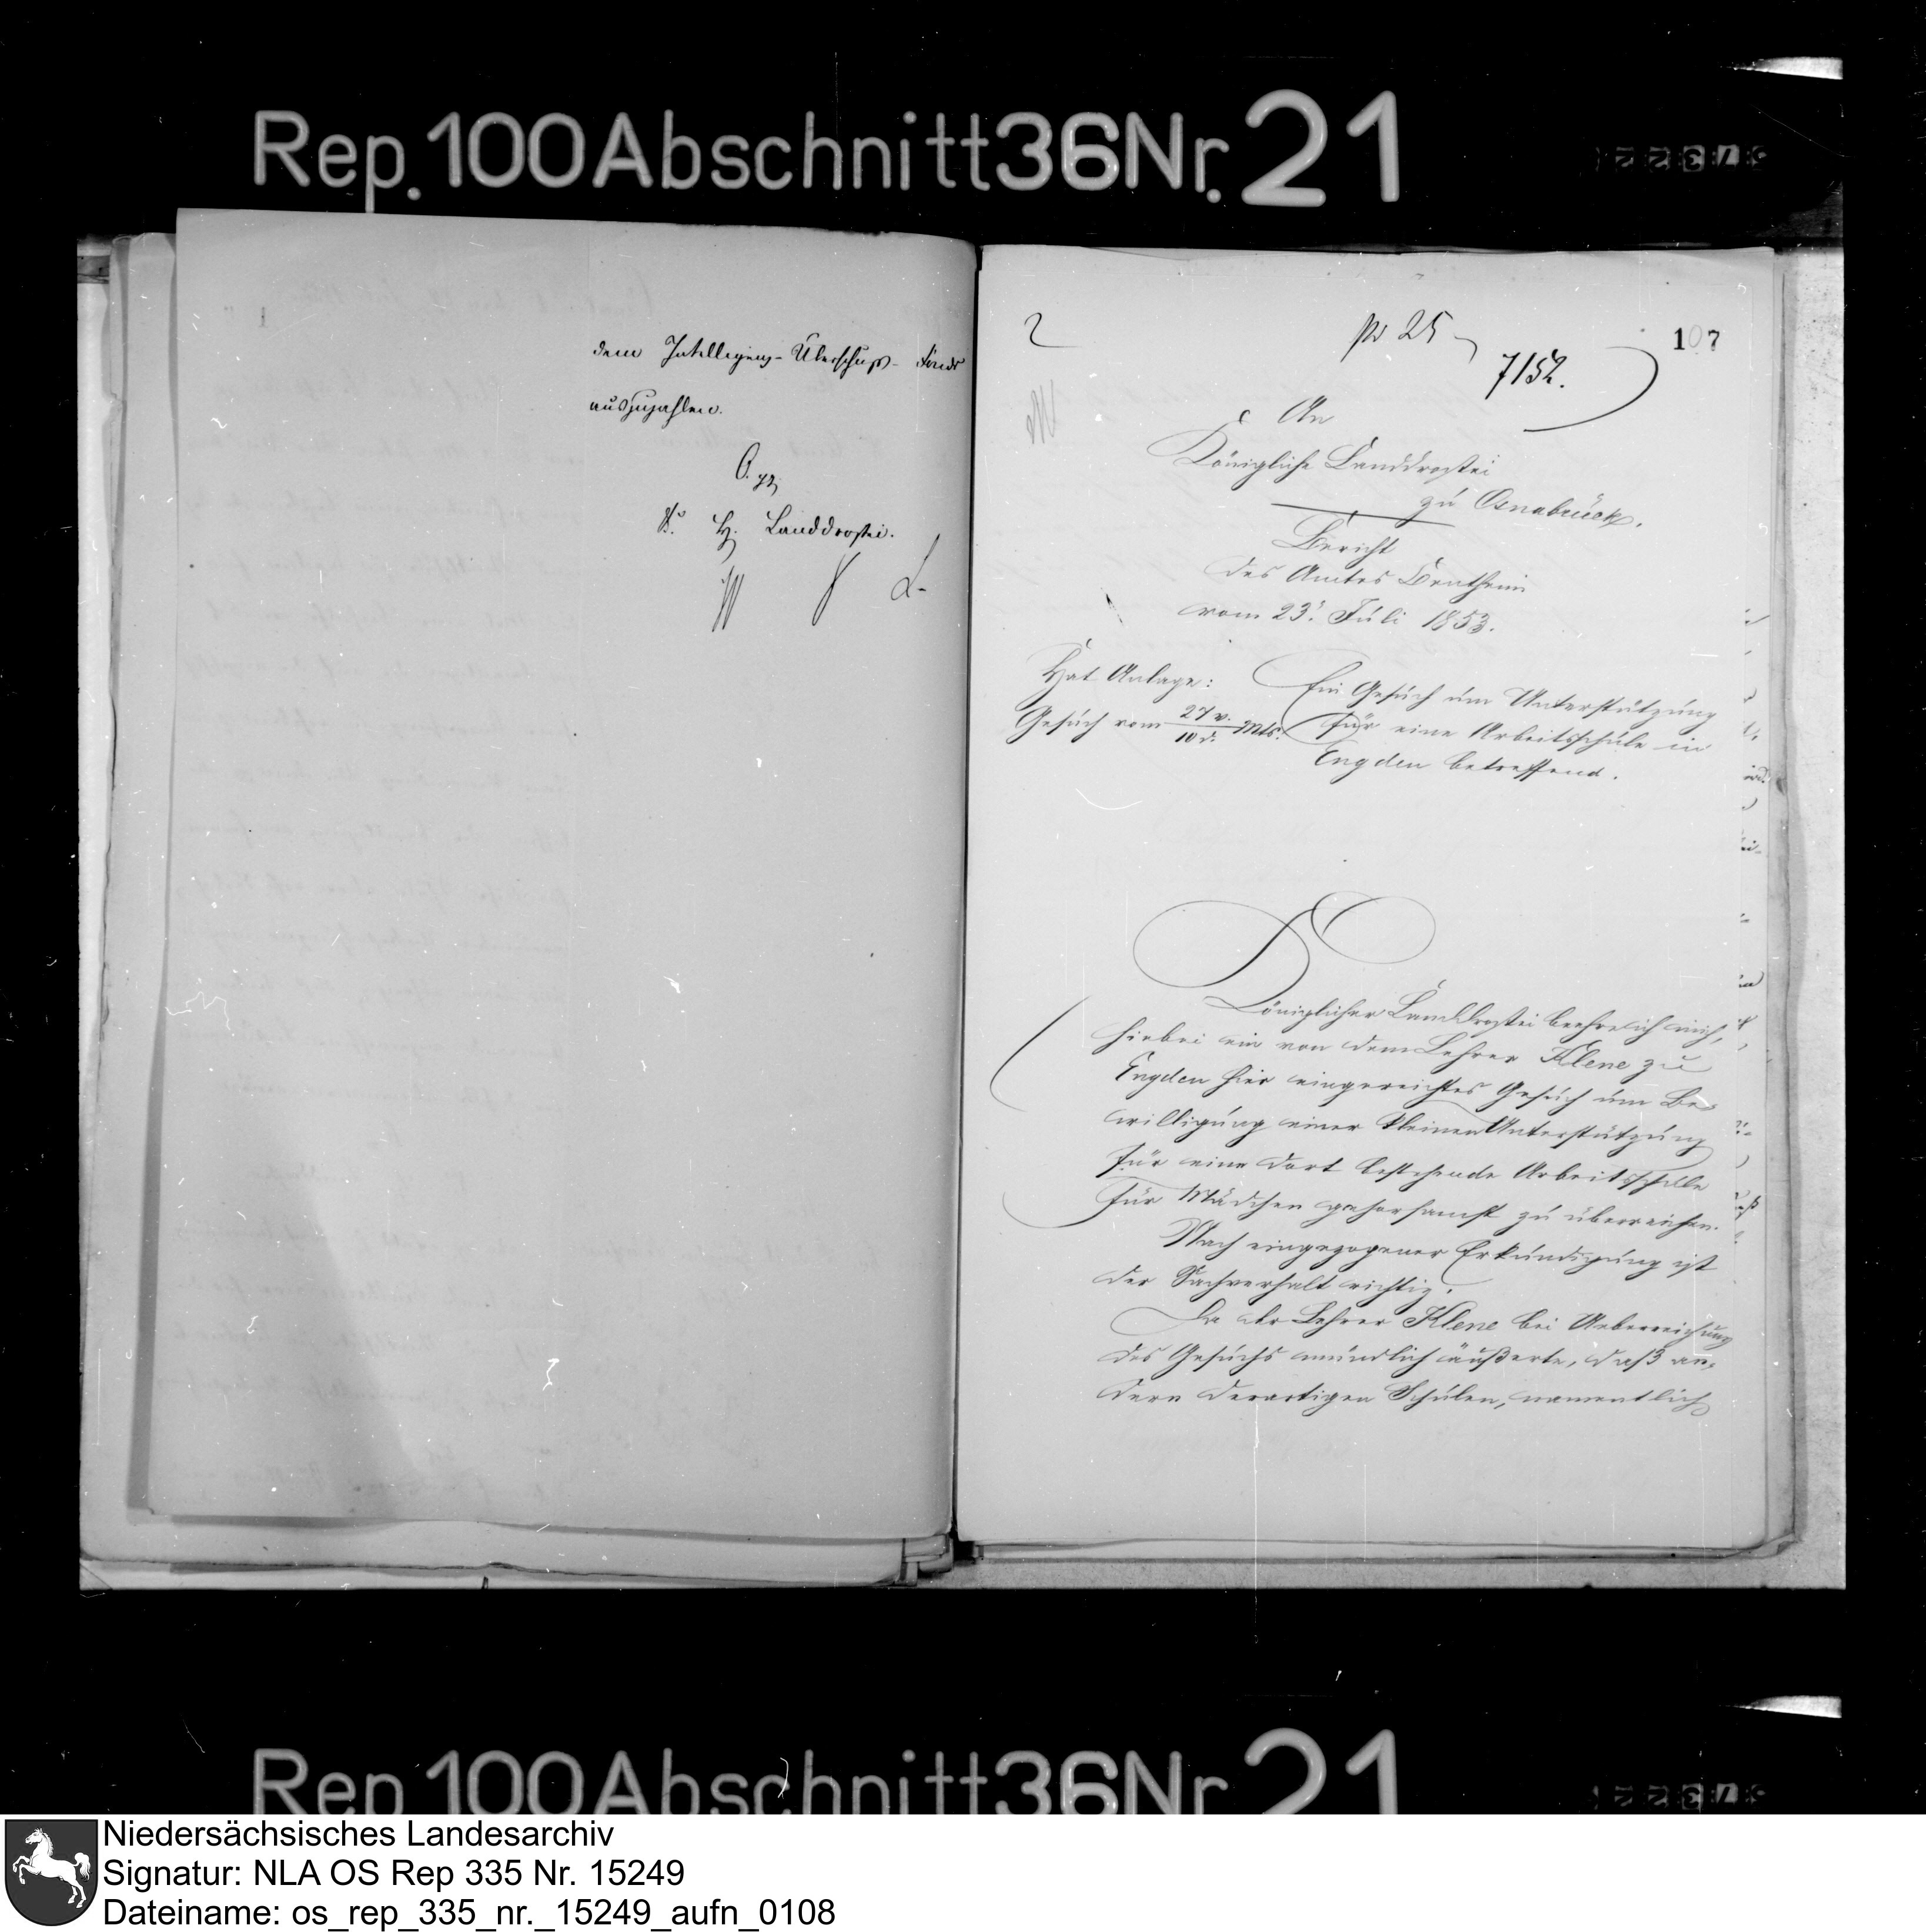 Rep. 100 Abschnitt 36 Nr. 21
dem Intelligenz-Überschuß-Fonds
auszuzahlen.
K. H. Landdrostei.
2
pr 25
7/52.
107
An
Königliche Landdrostei
zu Osnabrück.
Bericht
des Amtes Bentheim
vom 23. Juli 1853.
Hat Anlage:
Gesuch vom 27 v./10 d. Mts.
Ein Gesuch um Unterstützung
für eine Arbeitsschule in
Engden betreffend.
Königlicher Landdrostei beehre ich mich,
hiebei ein von dem Lehrer Klene zu
Engden hier eingereichtes Gesuch um Be-
willigung einer kleinen Unterstützung
für eine dort bestehende Arbeitsschule
für Mädchen gehorsamst zu überreichen.
Nach eingezogener Erkundigung ist
der Sachverhalt richtig.
Da der Lehrer Klene bei Ueberreichung
des Gesuchs mündlich äußerte, daß an-
dern derartigen Schulen, namentlich
Rep. 100 Abschnitt 36 Nr. 21
Niedersächsisches Landesarchiv
Signatur: NLA OS Rep 335 Nr. 15249
Dateiname: os_rep_335_nr._15249_aufn_0108